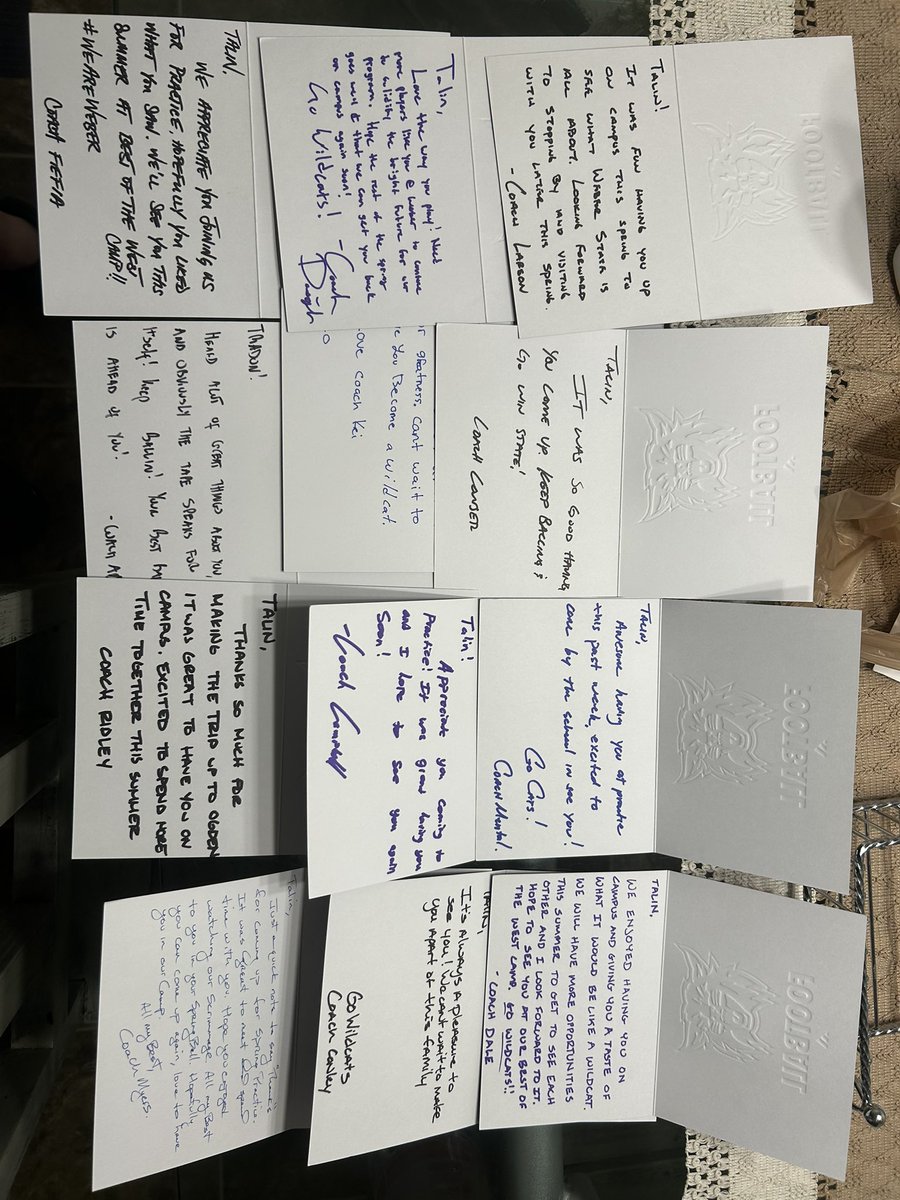 TALIN,
WE APPRECIATE YOU JOINING US
FOR PRACTICE. HOPEFULLY YOU LIKED
WHAT YOU SAW. WE'LL SEE YOU THIS
SUMMER AT BEST OF THE WEST
CAMP!!
#WEAREWEBER
COACH FIEFIA
Talin,
Love the way you play! Need
more players like you @ Weber to continue
to solidify the bright future for our
program. Hope the rest of the spring
goes well & that we can get you back
on campus again soon!
Go Wildcats!
-Coach
TALIN!
IT WAS FUN HAVING YOU UP
ON CAMPUS THIS SPRING TO
SEE WHAT WEBER STATE IS
ALL ABOUT. LOOKING FORWARD
TO STOPPING BY AND VISITING
WITH YOU LATER THIS SPRING.
- COACH LARSON
FOOTBALL
HEARD ALOT OF GREAT THINGS ABOUT YOU,
AND OBVIOUSLY THE TAPE SPEAKS FOR
ITSELF! KEEP BALLIN! YOUR BEST
IS AHEAD OF YOU!
- COACH
greatness. Cant wait to
you Become a wildcat.
Love coach Kei
TALIN,
IT WAS SO GOOD HAVING
YOU COME UP. KEEP BALLING &
GO WIN STATE!
COACH
FOOTBALL
TALIN,
THANKS SO MUCH FOR
MAKING THE TRIP UP TO OGDEN
IT WAS GREAT TO HAVE YOU ON
CAMPUS. EXCITED TO SPEND MORE
TIME TOGETHER THIS SUMMER
COACH RIDLEY
Talin!
Appreciate you coming to
Practice! It was great having you
and I hope to see you again
Soon!
-Coach Campbell
Talin,
Awesome having you at practice
this past week, excited to
come by the school in see you!
Go Cats!
Coach
FOOTBALL
Talin,
Just a quick note to say "Thanks"
for coming up for spring Practice.
It was Great to meet and spend
time with you. Hope you enjoyed
watching our Scrimmage. All my Best
to you in your Spring Ball. Hopefully
you can come up again, love to have
you in our Camp.
All my Best,
Coach Myers.
TALIN,
It's Always A pleasure to
see you! We cant wait to make
you Apart of this family
Go Wildcats
Coach Conley
TALIN,
WE ENJOYED HAVING YOU ON
CAMPUS AND GIVING YOU A TASTE OF
WHAT IT WOULD BE LIKE A WILDCAT.
WE WILL HAVE MORE OPPORTUNITIES
THIS SUMMER TO GET TO SEE EACH
OTHER AND I LOOK FORWARD TO IT.
HOPE TO SEE YOU AT OUR BEST OF
THE WEST CAMP. GO WILDCATS!!
- COACH DALE
FOOTBALL